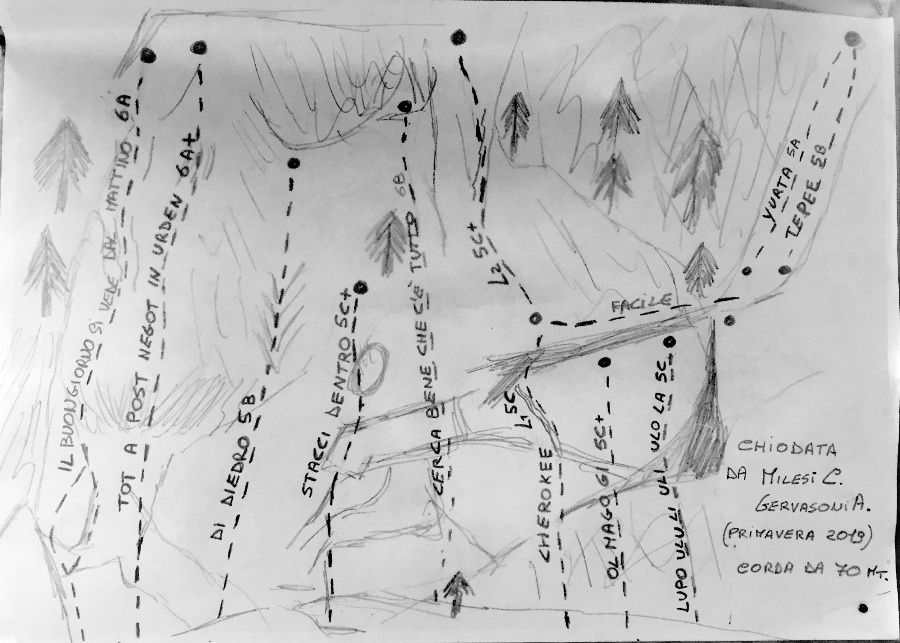 IL BUONGIORNO SI VEDE DAL MATTINO 6A
TOT A POST NEGOT IN URDEN 6A+
DI DIEDRO 5B
STACCI DENTRO 5C+
CERCA BENE CHE C'È TUTTO 6B
L2 5C+
L1 5C
CHEROKEE
OL MAGO GI 5C+
LUPO ULULI ULI ULO LA 5C
FACILE
YURTA 5A
TEPEE 5B
CHIODATA
DA MILESI C.
GERVASONI A.
(PRIMAVERA 2019)
CORDA DA 70 MT.